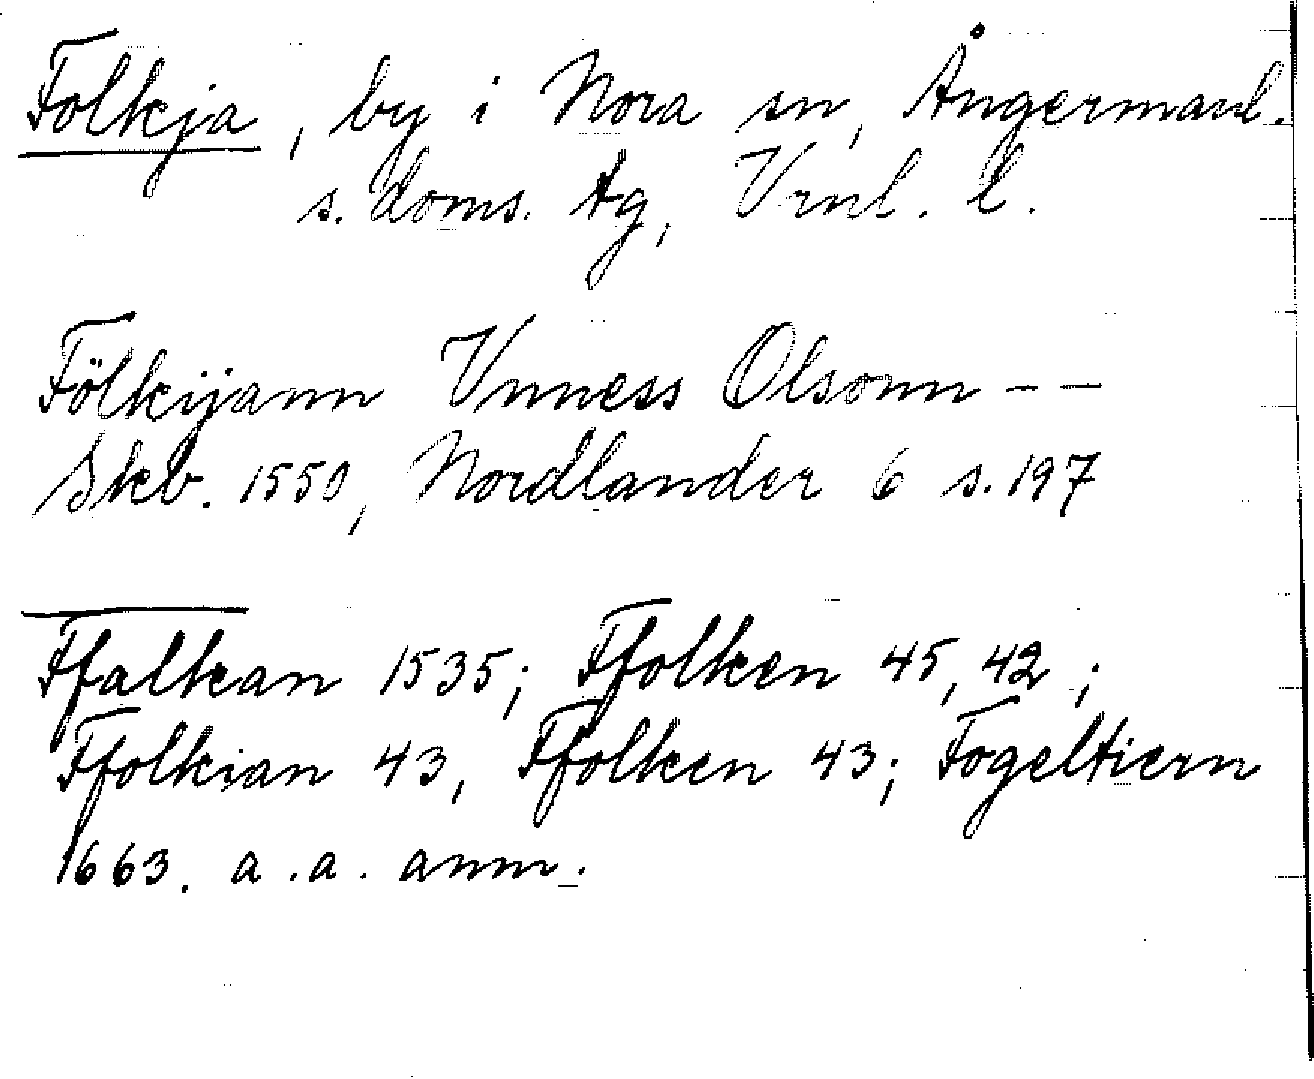 Folkja, by i Nora sn, Ångermanl.
s. doms. tg, Vrnl. l.
Fölkijann Vnness Olsonn - -
Skb. 1550, Nordlander 6 s. 197
Ffalkan 1535; Ffolken 45, 42;
Ffolkian 43, Ffolken 43; Fogeltiern
1663. a. a. anm.